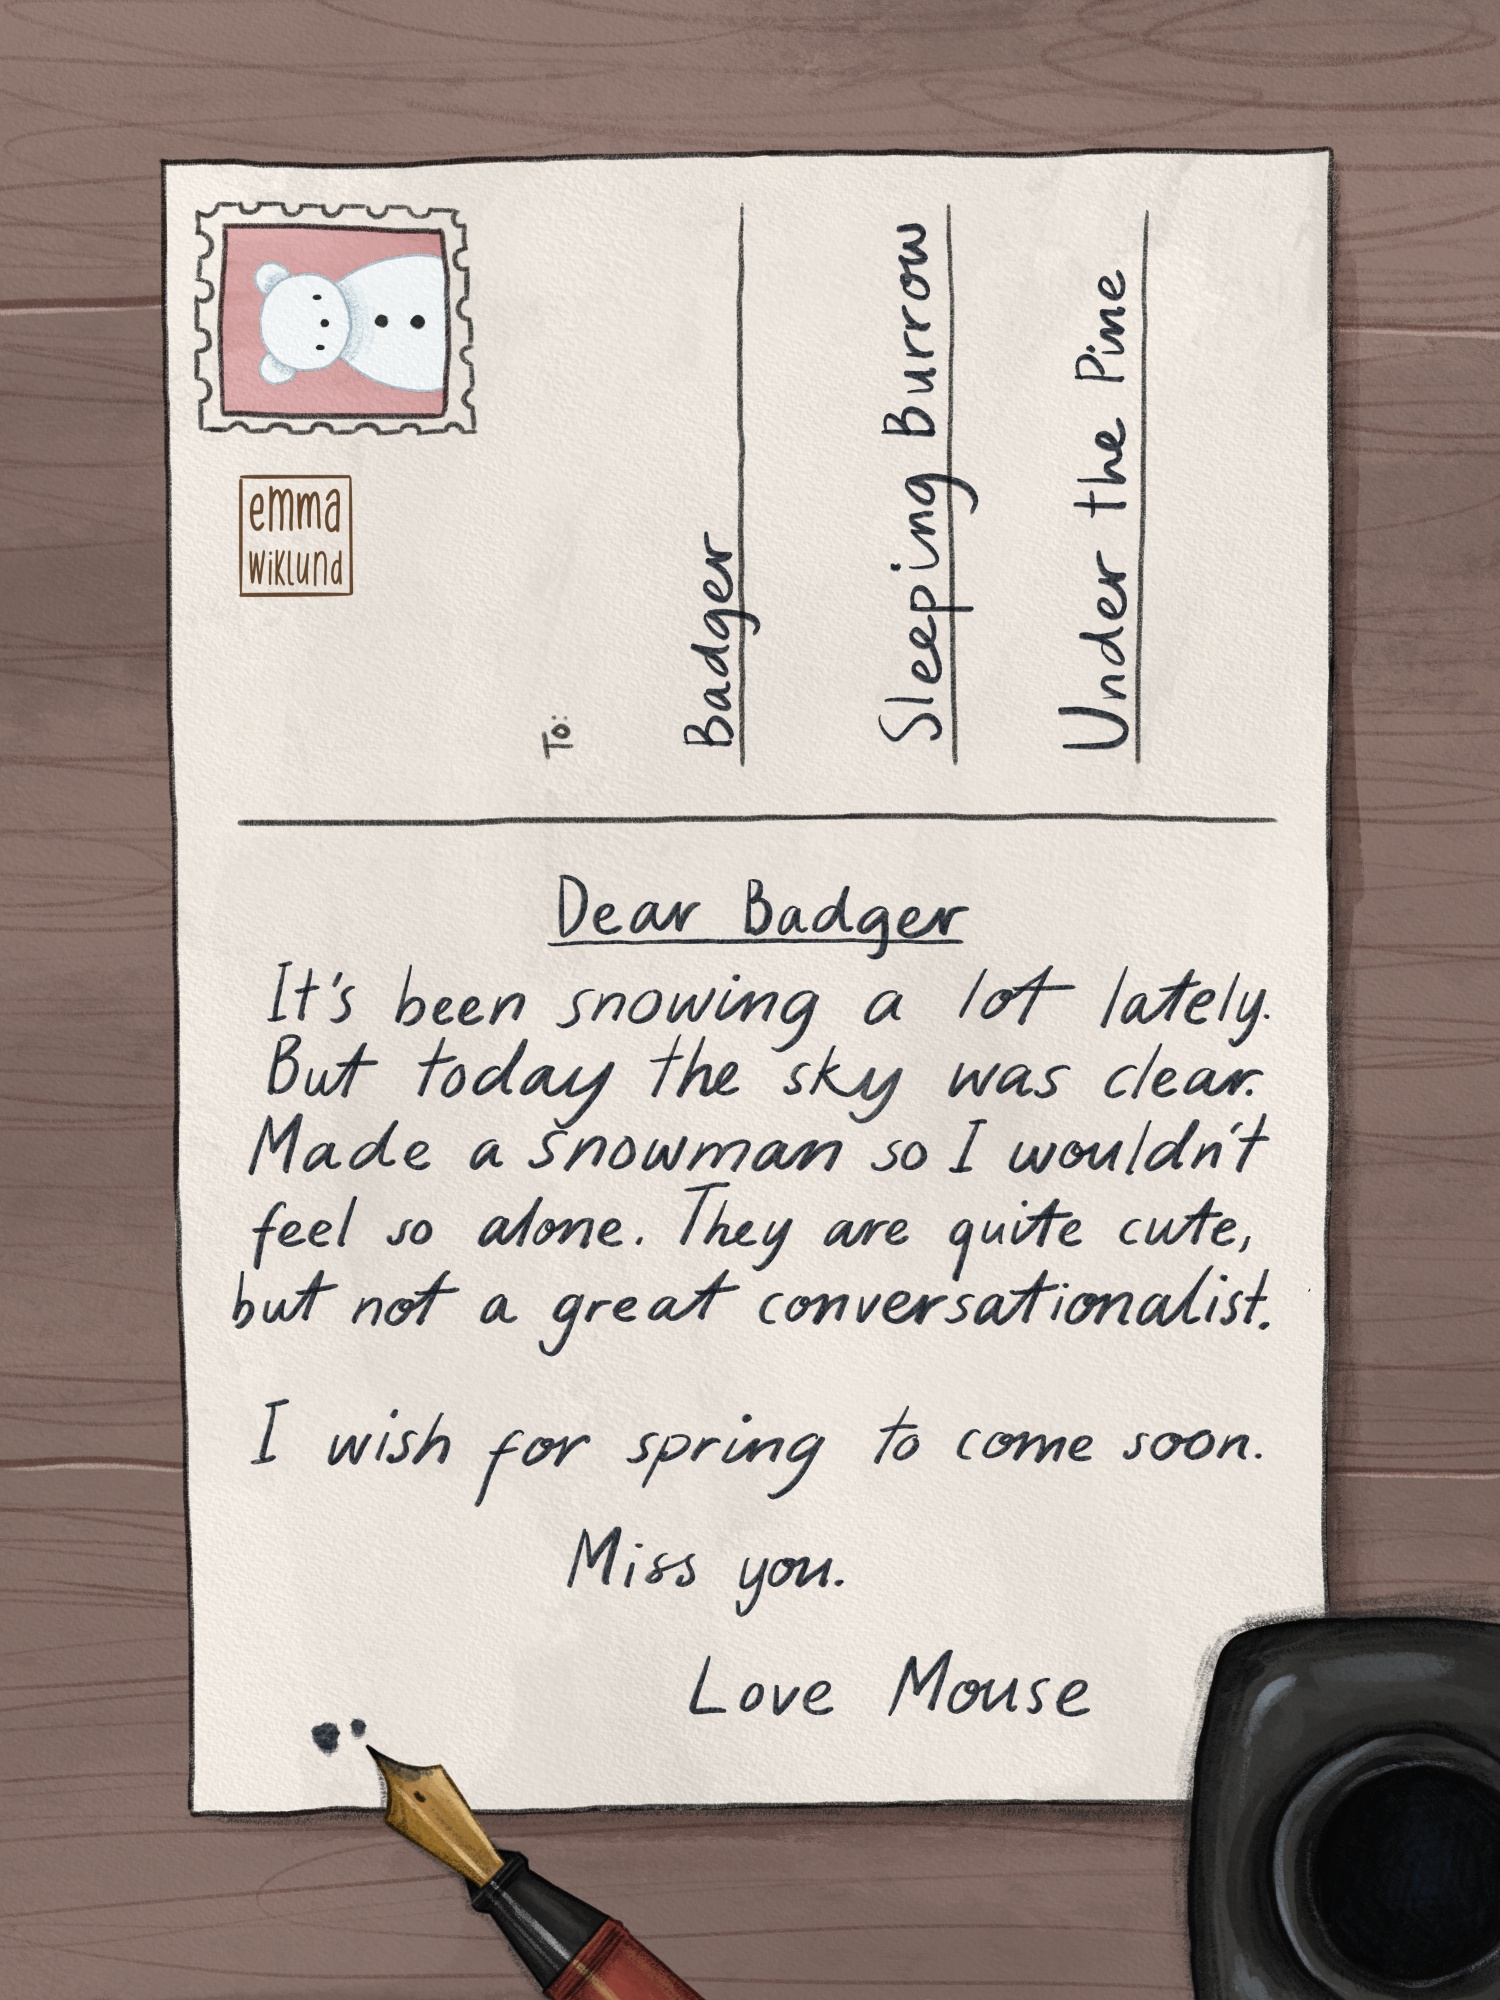 emma
wiklund
To:
Badger
Sleeping Burrow
Under the Pine
Dear Badger
It's been snowing a lot lately.
But today the sky was clear.
Made a snowman so I wouldn't
feel so alone. They are quite cute,
but not a great conversationalist.
I wish for spring to come soon.
Miss you.
Love Mouse